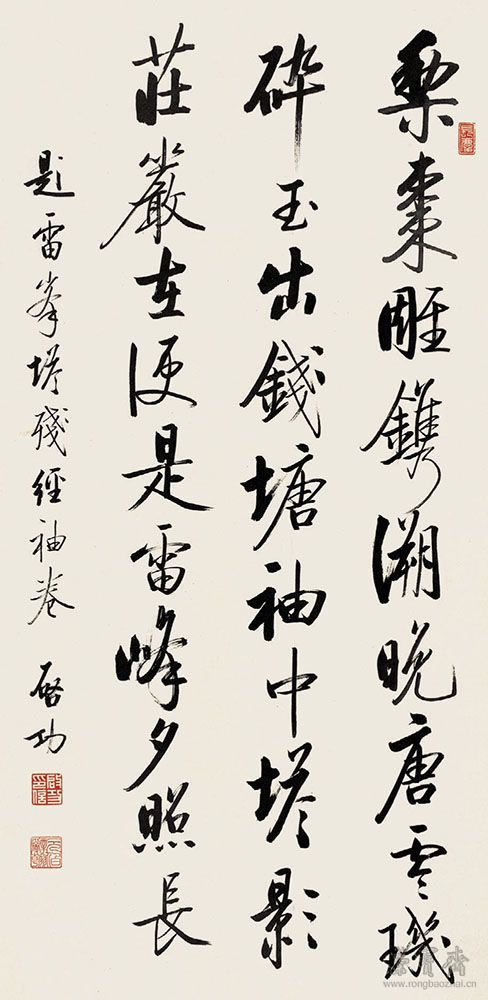 梨棗雕鐫溯晚唐零璣
碎玉出錢塘袖中塔影
莊嚴在便是雷峰夕照長
題雷峯塔殘經袖卷 啓功
榮寶齋
www.rongbaozhai.cn